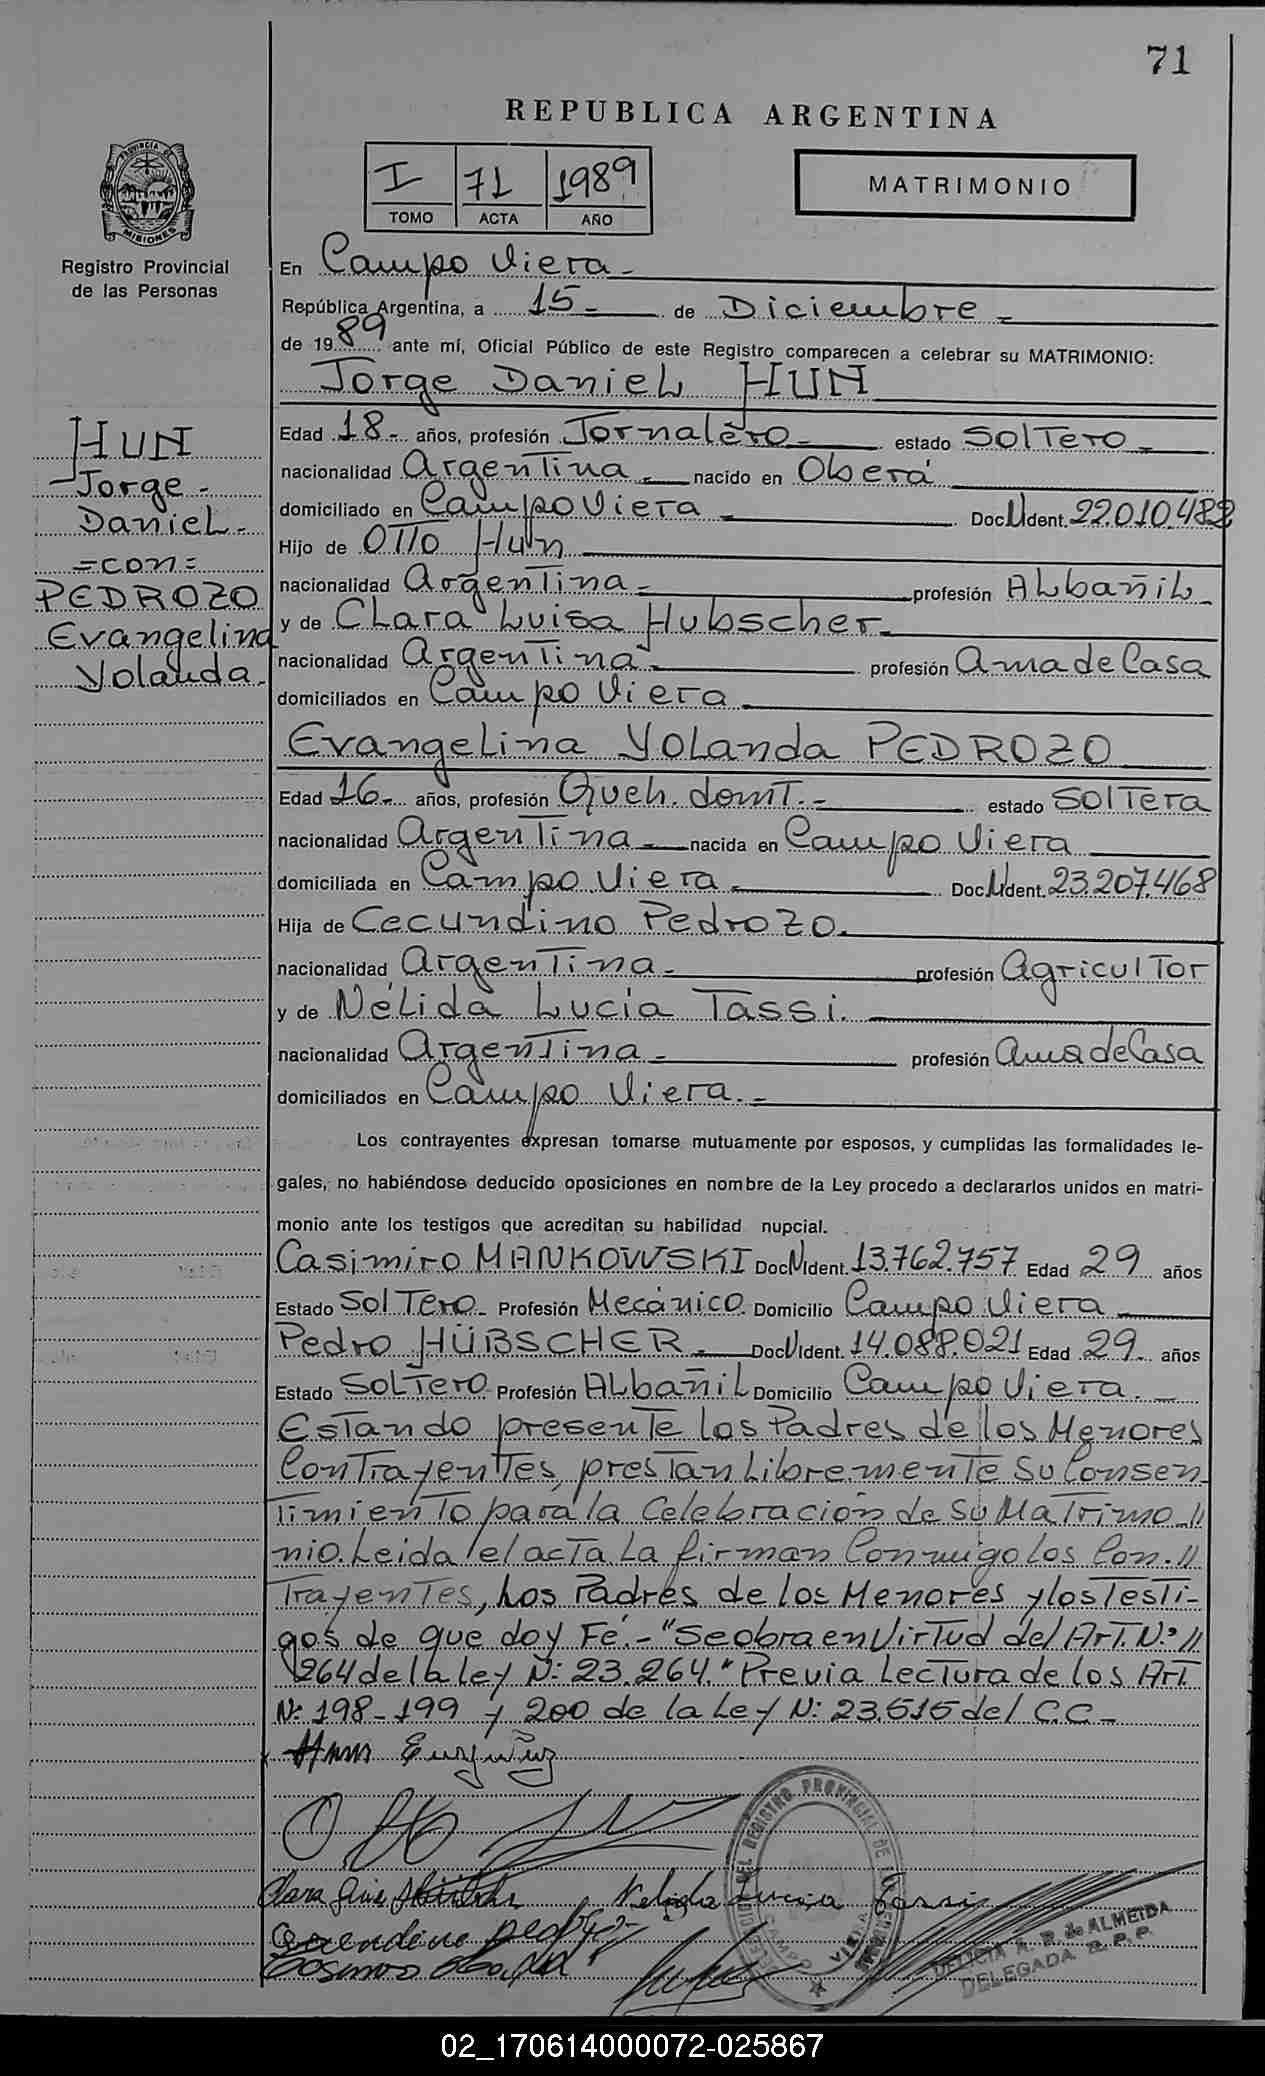 71
REPUBLICA ARGENTINA
PROVINCIA DE
MISIONES
I 71 1989
TOMO ACTA AÑO
MATRIMONIO
Registro Provincial
de las Personas
En Campo Viera
República Argentina, a 15 de Diciembre
de 1989 ante mí, Oficial Público de este Registro comparecen a celebrar su MATRIMONIO:
Jorge Daniel HUN
Edad 18 años, profesión Jornalero estado Soltero
nacionalidad Argentina nacido en Oberá
domiciliado en Campo Viera Doc. N Ident. 22.010.482
Hijo de Otto Hun
nacionalidad Argentina profesión Albañil
y de Clara Luisa Hubscher
nacionalidad Argentina profesión Ama de Casa
domiciliados en Campo Viera
HUN
Jorge
Daniel
=con=
PEDROZO
Evangelina
Yolanda
Evangelina Yolanda PEDROZO
Edad 16 años, profesión Queh. domt. estado Soltera
nacionalidad Argentina nacida en Campo Viera
domiciliada en Campo Viera Doc. N Ident. 23.207.468
Hija de Cecundino Pedrozo.
nacionalidad Argentina profesión Agricultor
y de Nélida Lucía Tassi.
nacionalidad Argentina profesión Ama de Casa
domiciliados en Campo Viera.
Los contrayentes expresan tomarse mutuamente por esposos, y cumplidas las formalidades le-
gales, no habiéndose deducido oposiciones en nombre de la Ley procedo a declararlos unidos en matri-
monio ante los testigos que acreditan su habilidad nupcial.
Casimiro MANKOWSKI Doc N Ident. 13.762.757 Edad 29 años
Estado Soltero Profesión Mecánico Domicilio Campo Viera
Pedro HÜBSCHER Doc N Ident. 14.088.021 Edad 29 años
Estado Soltero Profesión Albañil Domicilio Campo Viera.
Estando presente los Padres de los Menores
Contrayentes, prestan Libremente Su Consen
timiento para la Celebración de Su Matrimo //
nio. Leida el acta La firman Conmigo los Con. //
Trayentes, Los Padres de los Menores y los Testi-
gos de que doy Fé.- "Se obra en Virtud del Art. N° //
264 de la Ley N: 23.264." Previa Lectura de los Art.
N: 198-199 y 200 de la Ley N: 23.515 del C.C.-
Otto
Clara Nelida Lucia Tassi
DELICIA A. R. de ALMEIDA
DELEGADA R. P. P.
02_170614000072-025867